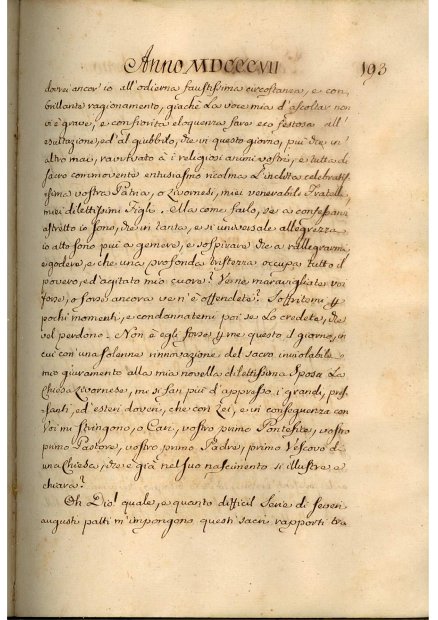 Anno MDCCCVII 193
dovrei ancor io all'odierna faustissima circostanza, e con
brillante ragionamento, giachè la voce mia d'ascoltar non
v'è grave, e con fiorita eloquenza fare eco festosa all'
esultazione, ed al giubbilo, che in questo giorno, più che in
altro mai, ravvivato à i religiosi animi vostri, e tutta di
sacro commovente entusiasmo ricolma l'inclita celebratis
sima vostra Patria, o Livornesi, miei venerabili Fratelli,
miei dilettissimi Figli. Ma come farlo, se a confessare
astretto io sono, che in tanta, e sì universale allegrezza
io altro non più a gemere, e sospirare che a rallegrarmi
e godere, e che una profonda tristezza occupa tutto il
povero, ed agitato mio cuore? Vene maravigliate voi
forse, o forse ancora ve n'è offendete? Soffritemi p
pochi momenti, e condannatemi poi se lo credete, che
vel perdono. Non è egli forse p me questo il giorno, in
cui con una solenne rinnovazione del sacro inviolabile
mio giuramento alla mia novella dilettissima Sposa la
Chiesa Livornese, mi si fan più d'appresso i grandi, pres
santi, ed esteri doveri, che con Lei, e in conseguenza con
Voi mi stringono, o Cari, vostro primo Pontefice, vostro
primo Pastore, vostro primo Padre, primo Vescovo di
una Chiesa, che è già nel suo nascimento sì illustre, e
chiara?
Oh Dio! quale, e quanto difficil Serie di severi
augusti patti m'impongono questi sacri rapporti tra